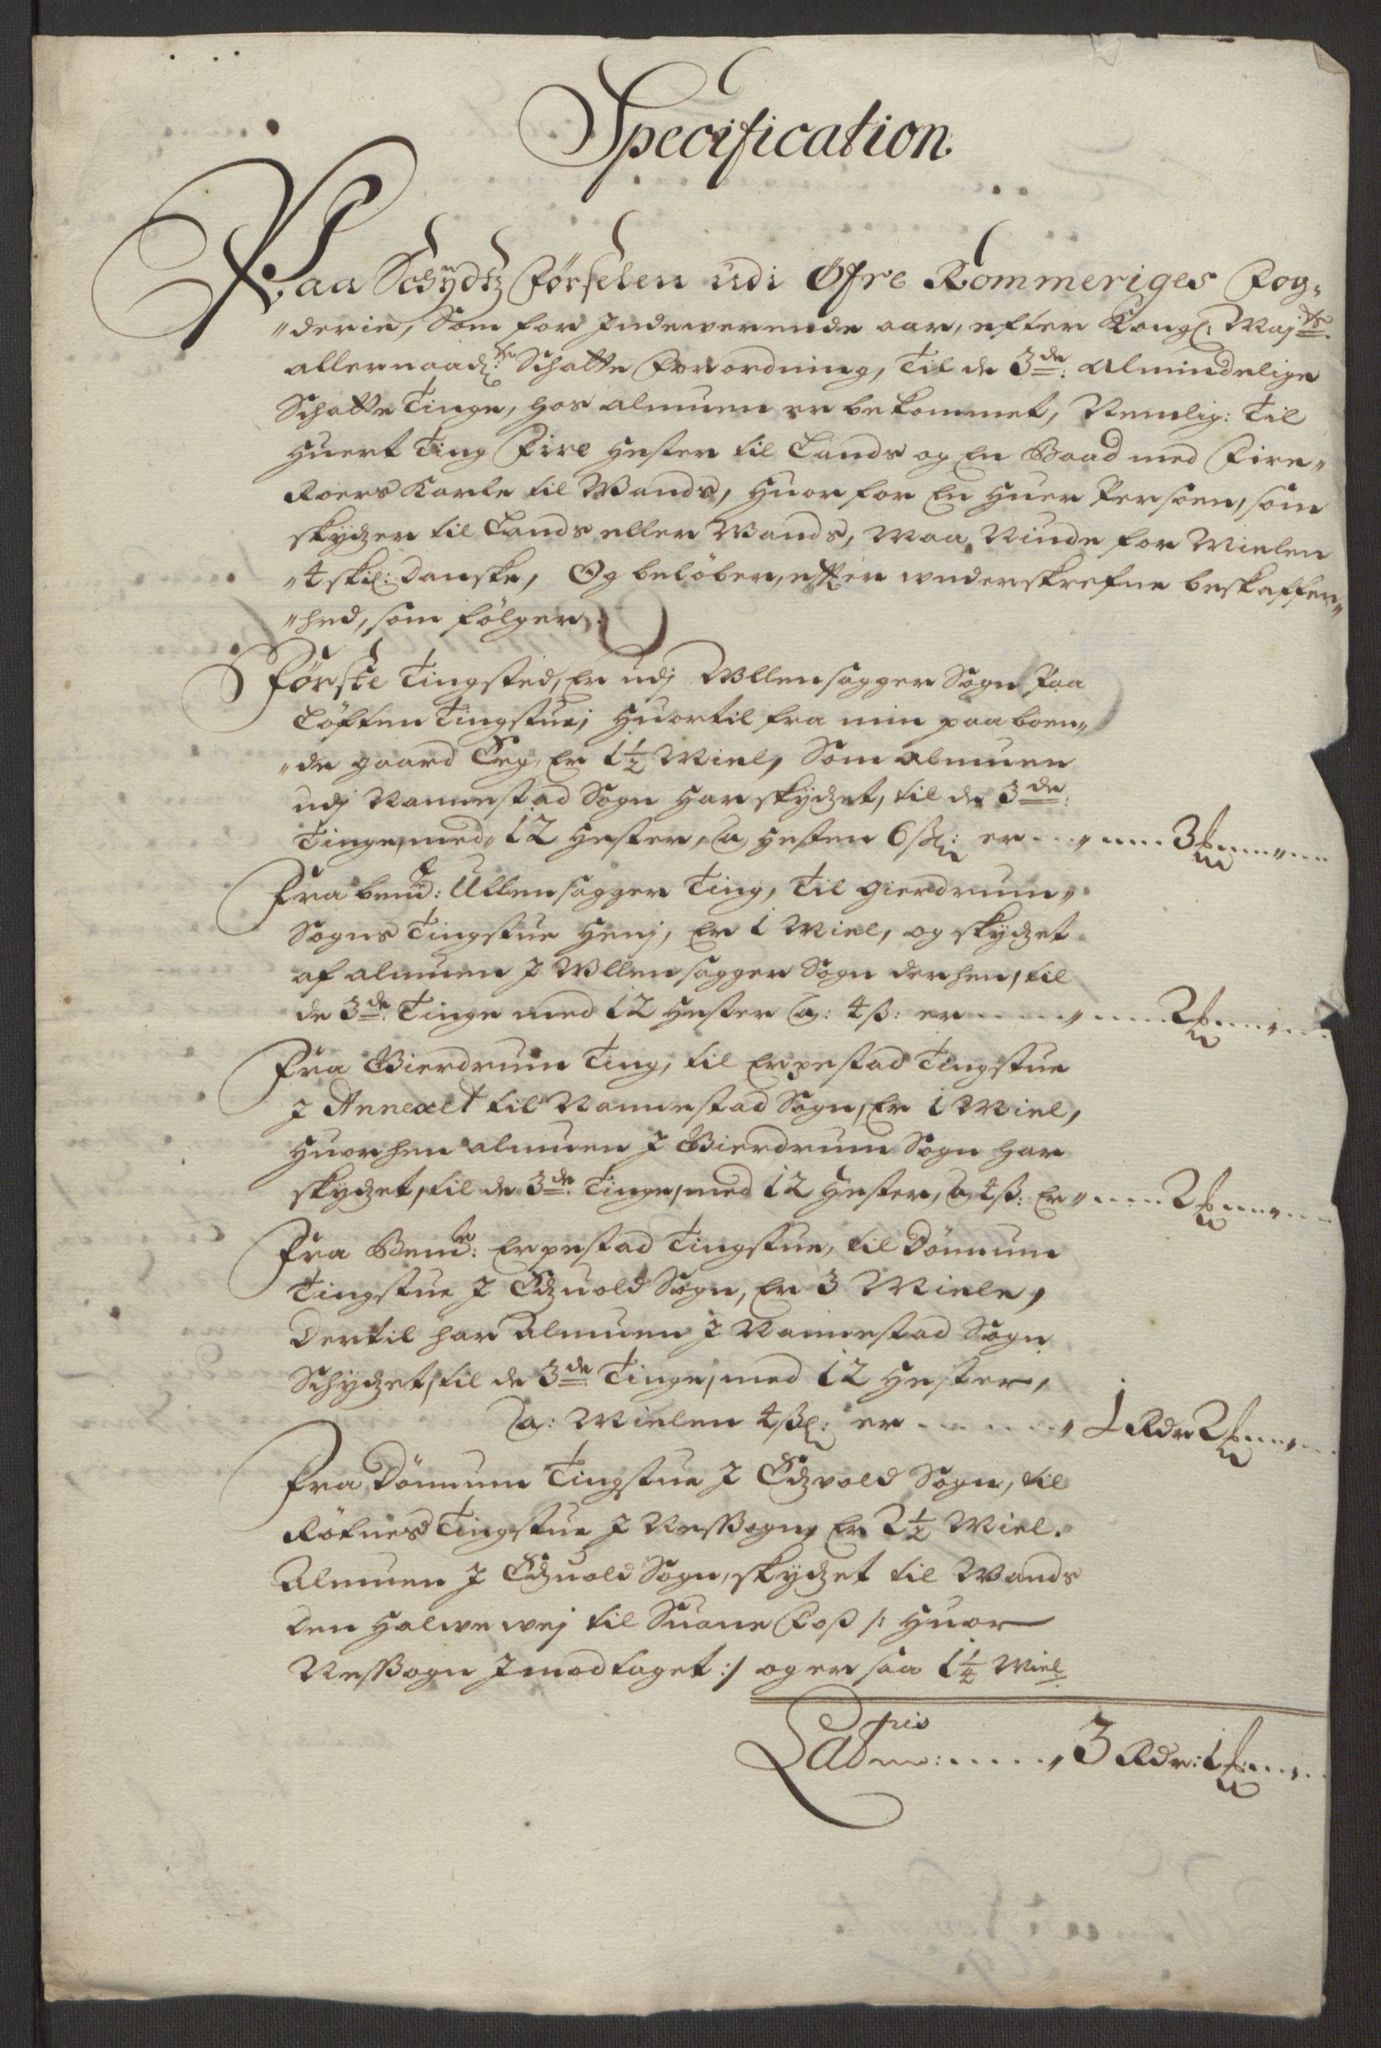 Specification
Paa Schydtz Førselen udi Øfre Rommeriges Fog-
"derie, Som for Indewerende aar, efter Kongl: Maj:ts
allernaad:ste Schatte Forordning, Til de 3de: Almindelige
Schatte Tinge, hos almuen er bekommet, Nemlig: Til
Huert Ting Fire Hester til Lands og En Baad med Fire"
Roers Karle til Wands, Huor for En Huer Persoen, som
skydzer til Lands eller Wands, Maa Niude for Mielen
"4 skil: Danske, Og beløber, efter underskrefne beskaffen"
"hed, som følger
Første Tingsted, Er udj Ullensagger Sogn Paa
Løften Tingstue, Huortil fra min paaboen"
"de gaard Leg, Er 1½ Miel, Som almuen
udj Nannestad Sogn Har skydzet, til de 3de:
Tinge, med 12 Hester, a Hesten 6 ß: er 3
Fra bem:te Ullensagger Ting, Til Gierdrum"
Sogns Tingstue Henj, Er 1 Miel, og skydzet
af almuen I Ullensagger Sogn derhen, til
de 3de: Tinge med 12 Hester a: 4 ß: er 2
Fra Gierdrum Ting, til Erpestad Tingstue
I Annexet til Nannestad Sogn, Er 1 Miel,
Huorhen almuen I Gierdrum Sogn har
skydzet, til de 3de: Tinge, med 12 Hester, a 4 ß: Er 2
Fra Bem:te Erpestad Tingstue, til Dønnum
Tingstue I Edzuold Sogn, Er 3 Miele,
Dertil har Almuen I Nannestad Sogn
Schydzet, til de 3de: Tinge, med 12 Hester,
a: Mielen 4 ß: er 1 Rdr 2
Fra Dønnum Tingstue I Edzvold Sogn, til
Røfnes Tingstue I Nessogn, Er 2½ Miel.
Almuen I Edzuold Sogn, skydzet til Wands
den Halwe wej til Suane Foss /: Huor
Nessogn Imodtaget :/ og er saa 1¼ Miel
Latus 3 Rdr: 1